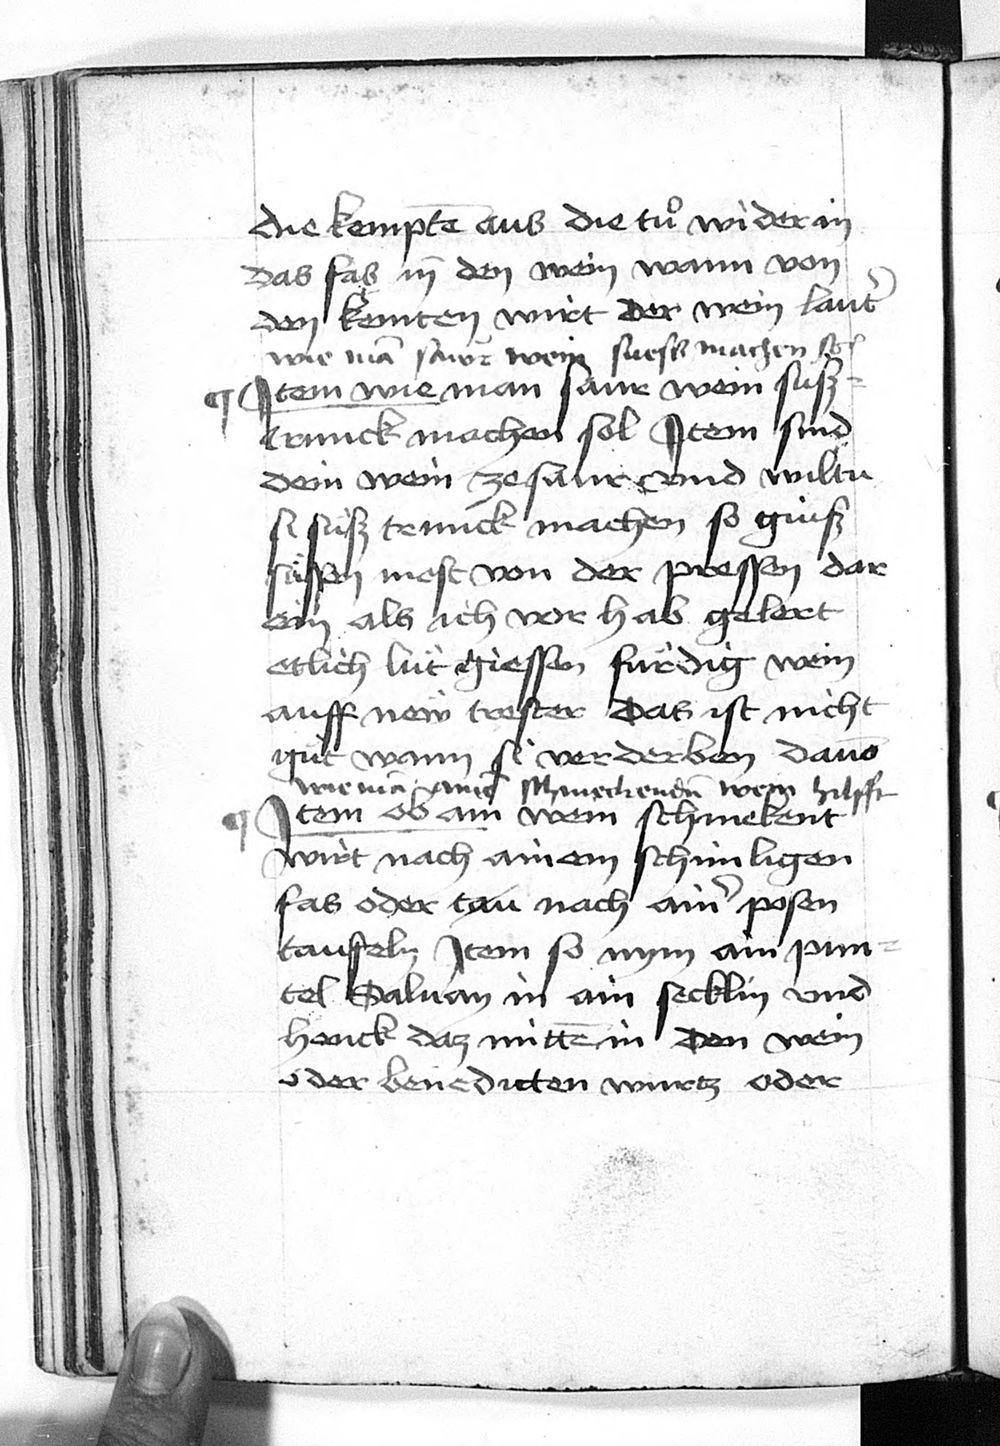 die kemptē aus die tuͦ wider in
das fas in̄ den wein wann von
den kemten wirt der wein laut̾
wie mā saur̄ wein suess machen sol
¶ Item wie man saur wein süsz=
trinck machen sol Item sind
dein wein ze saur vnd wiltu
si süsz trinck machen so geüsz
süssen most von der pressen dar
ein als ich vor hab gelert
etlich lüt giessen fürdig wein
auff new trester Das ist nicht
güt wann si verderben dauō
wie mā schmeckendē wein hilfft
¶ Item ob ain wein schmekent
wirt nach ainem schimligen
fas oder tau nach ain̾ posen
taufeln Item so nym ain pün=
tel Saluan in ain secklin vnd
henck daz mittē in den wein
oder benedicten wurtz oder